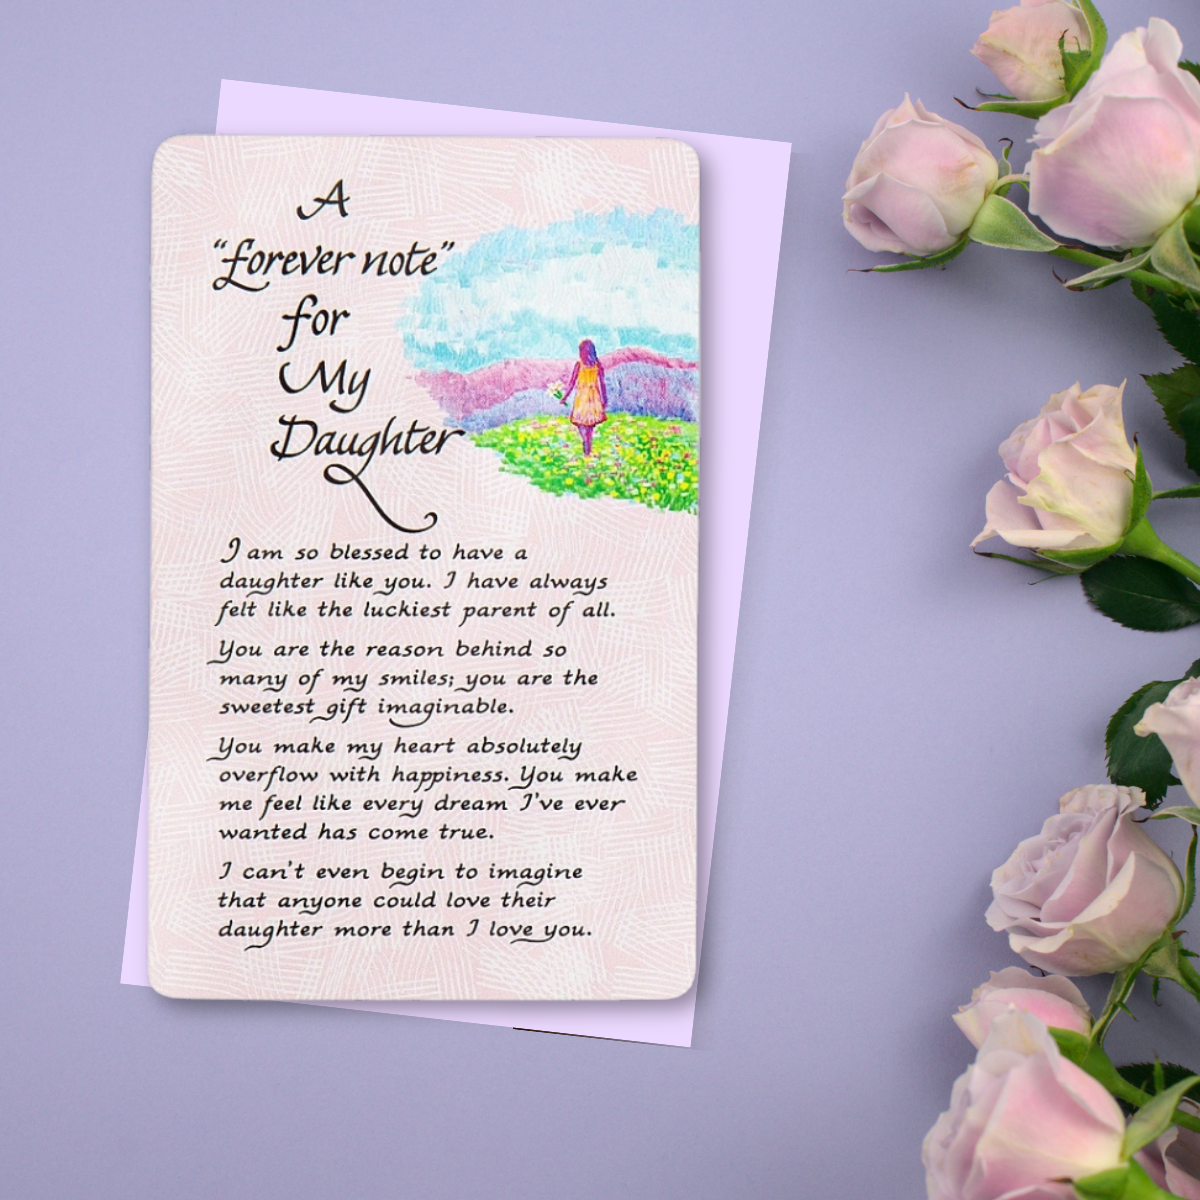 A
“forever note”
for
My
Daughter
I am so blessed to have a
daughter like you. I have always
felt like the luckiest parent of all.
You are the reason behind so
many of my smiles; you are the
sweetest gift imaginable.
You make my heart absolutely
overflow with happiness. You make
me feel like every dream I've ever
wanted has come true.
I can't even begin to imagine
that anyone could love their
daughter more than I love you.